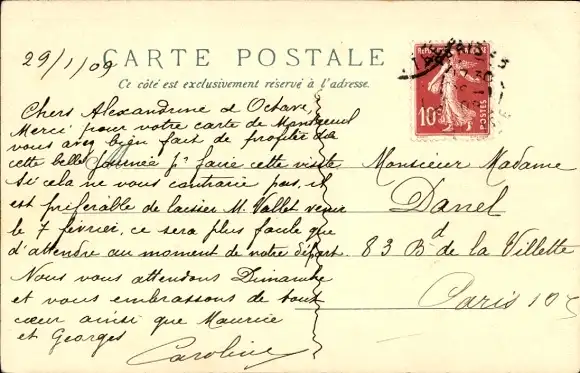 29/1/09
CARTE POSTALE
Ce côté est exclusivement réservé à l'adresse.
Chers Alexandrine et Octave
Merci pour votre carte de Montreuil
vous avez bien fait de profiter de
cette belle journée pr faire cette visite
Si cela ne vous contrarie pas, il
est préférable de laisser M. Vallet venir
le 7 février, ce sera plus facile que
d'attendre au moment de notre départ.
Nous vous attendons Dimanche
et vous embrassons de tout
cœur ainsi que Maurice
et Georges
Caroline
10c
POSTES
Monsieur Madame
Danel
83 Bd de la Villette
Paris 10e